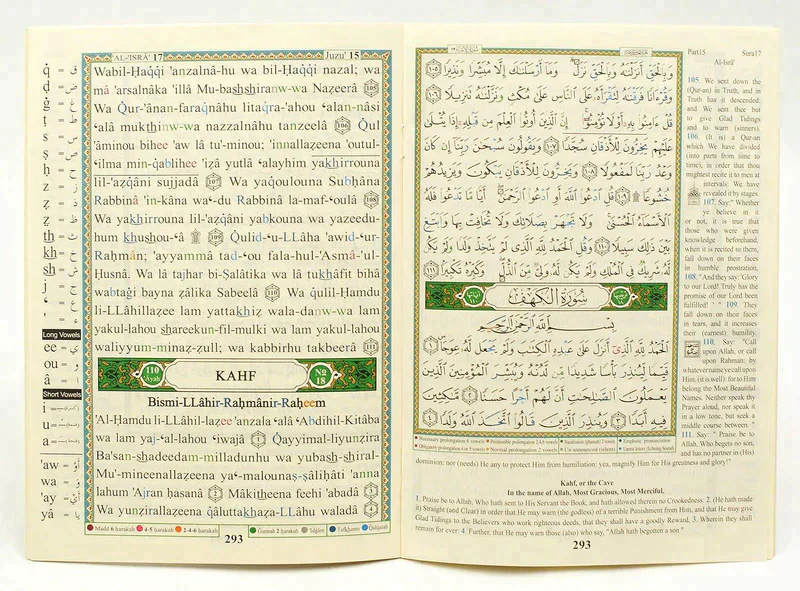 AL-'ISRÂ' 17 Juzu' 15
Wabil-Ḥaqqi 'anzalnâ-hu wa bil-Ḥaqqi nazal; wa
mâ 'arsalnâka 'illâ Mu-bashshiranw-wa Nazeerâ 105
Wa Qur-'ânan-faraqnâhu litaqra-'ahou 'alan-nâsi
'alâ mukthinw-wa nazzalnâhu tanzeelâ 106 Qul
'âminou bihee 'aw lâ tu'minou; 'innallazeena 'outul-
'ilma min-qablihee 'izâ yutlâ 'alayhim yakhirrouna
lil-'azqâni sujjadâ 107 Wa yaqoulouna Subḥâna
Rabbinâ 'in-kâna wa'-du Rabbinâ la-maf-'oulâ 108
Wa yakhirrouna lil-'azqâni yabkouna wa yazeedu-
hum khushou-'â 109 Qulid-'u-LLâha 'awid-'ur-
Raḥmân; 'ayyammâ tad-'ou fala-hul-'Asmâ-'ul-
Ḥusnâ. Wa lâ tajhar bi-Ṣalâtika wa lâ tukhâfit bihâ
wabtagi bayna zâlika Sabeelâ 110 Wa qulil-Ḥamdu
li-LLâhillazee lam yattakhiz wala-danw-wa lam
yakul-lahou shareekun-fil-mulki wa lam yakul-lahou
waliyyum-minaz-zull; wa kabbirhu takbeerâ 111
110 Ayah KAHF No 18
Bismi-LLâhir-Raḥmânir-Raḥeem
'Al-Ḥamdu li-LLâhil-lazee 'anzala 'alâ 'Abdihil-Kitâba
wa lam yaj-'al-lahou 'iwajâ 1 Qayyimal-liyunzira
Ba'san-shadeedam-milladunhu wa yubash-shiral-
Mu'-mineenallazeena ya'-malounaṣ-ṣâliḥâti 'anna
lahum 'Ajran ḥasanâ 2 Mâkitheena feehi 'abadâ 3
Wa yunziralleena qâluttakhaza-LLâhu waladâ 4
Madd 6 ḥarakah 4-5 ḥarakah 2-4-6 ḥarakah Gunnah 2 ḥarakah 'Idgâm Tafkheem Qalqalah
293
q = ق
d = ض
g = غ
ṭ = ط
s = س
ṣ = ص
ḥ = ح
z = ز
z = ذ
th = ث
kh = خ
sh = ش
j = ج
' = ع
' = ء
Long Vowels
ee = ي
ou = و
â = ا
Short Vowels
i =
u =
a =
'aw = أَوْ
wa = وَ
'ay = أَيْ
yâ = يَا
Part15 Sura17
Al-Isrâ'
وَبِالْحَقِّ أَنزَلْنَاهُ وَبِالْحَقِّ نَزَلَ وَمَا أَرْسَلْنَاكَ إِلَّا مُبَشِّرًا وَنَذِيرًا ١٠٥
وَقُرْآنًا فَرَقْنَاهُ لِتَقْرَأَهُ عَلَى النَّاسِ عَلَى مُكْثٍ وَنَزَّلْنَاهُ تَنزِيلًا ١٠٦
قُلْ آمِنُوا بِهِ أَوْ لَا تُؤْمِنُوا إِنَّ الَّذِينَ أُوتُوا الْعِلْمَ مِن قَبْلِهِ إِذَا يُتْلَى
عَلَيْهِمْ يَخِرُّونَ لِلْأَذْقَانِ سُجَّدًا ١٠٧ وَيَقُولُونَ سُبْحَانَ رَبِّنَا إِن كَانَ
وَعْدُ رَبِّنَا لَمَفْعُولًا ١٠٨ وَيَخِرُّونَ لِلْأَذْقَانِ يَبْكُونَ وَيَزِيدُهُمْ
خُشُوعًا ۩ ١٠٩ قُلِ ادْعُوا اللَّهَ أَوِ ادْعُوا الرَّحْمَٰنَ أَيًّا مَّا تَدْعُوا فَلَهُ
الْأَسْمَاءُ الْحُسْنَى وَلَا تَجْهَرْ بِصَلَاتِكَ وَلَا تُخَافِتْ بِهَا وَابْتَغِ
بَيْنَ ذَٰلِكَ سَبِيلًا ١١٠ وَقُلِ الْحَمْدُ لِلَّهِ الَّذِي لَمْ يَتَّخِذْ وَلَدًا وَلَمْ يَكُن
لَّهُ شَرِيكٌ فِي الْمُلْكِ وَلَمْ يَكُن لَّهُ وَلِيٌّ مِّنَ الذُّلِّ وَكَبِّرْهُ تَكْبِيرًا ١١١
سُورَةُ الْكَهْفِ
بِسْمِ اللَّهِ الرَّحْمَٰنِ الرَّحِيمِ
الْحَمْدُ لِلَّهِ الَّذِي أَنزَلَ عَلَى عَبْدِهِ الْكِتَابَ وَلَمْ يَجْعَل لَّهُ عِوَجًا ١
قَيِّمًا لِّيُنذِرَ بَأْسًا شَدِيدًا مِّن لَّدُنْهُ وَيُبَشِّرَ الْمُؤْمِنِينَ الَّذِينَ
يَعْمَلُونَ الصَّالِحَاتِ أَنَّ لَهُمْ أَجْرًا حَسَنًا ٢ مَّاكِثِينَ
فِيهِ أَبَدًا ٣ وَيُنذِرَ الَّذِينَ قَالُوا اتَّخَذَ اللَّهُ وَلَدًا ٤
105. We sent down the
(Qur-an) in Truth, and in
Truth has it descended:
and We sent thee but
to give Glad Tidings
and to warn (sinners).
106. (It is) a Qur-an
which We have divided
(into parts from time to
time), in order that thou
mightest recite it to men at
intervals: We have
revealed it by stages.
107. Say:" Whether
ye believe in it
or not, it is true that
those who were given
knowledge beforehand,
when it is recited to them,
fall down on their faces
in humble prostration,
108. "And they say: 'Glory
to our Lord! Truly has the
promise of our Lord been
fulfilled!' " 109. They
fall down on their faces
in tears, and it increases
their (earnest) humility.
110. Say: "Call
upon Allah, or call
upon Rahman: by
whatever name ye call upon
Him, (it is well): for to Him
belong the Most Beautiful
Names. Neither speak thy
Prayer aloud, nor speak it
in a low tone, but seek a
middle course between."
111. Say: " Praise be to
Allah, Who begets no son,
and has no partner in (His)
dominion: nor (needs) He any to protect Him from humiliation: yea, magnify Him for His greatness and glory!"
Kahf, or the Cave
In the name of Allah, Most Gracious, Most Merciful.
1. Praise be to Allah, Who hath sent to His Servant the Book, and hath allowed therein no Crookedness: 2. (He hath made
it) Straight (and Clear) in order that He may warn (the godless) of a terrible Punishment from Him, and that He may give
Glad Tidings to the Believers who work righteous deeds, that they shall have a goodly Reward, 3. Wherein they shall
remain for ever: 4. Further, that He may warn those (also) who say, "Allah hath begotten a son."
293